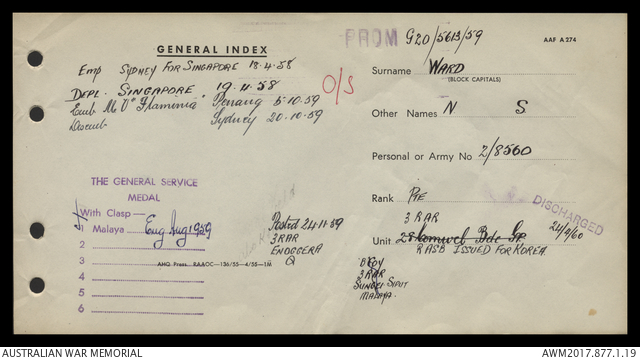 GENERAL INDEX
Emp SYDNEY FOR SINGAPORE 18.4.58
DEPL. SINGAPORE 19.4.58
Emb M.V "Flaminia" Penang 5.10.59
Disemb Sydney 20.10.59
O/S
THE GENERAL SERVICE
MEDAL
With Clasp—
1 Malaya Eng Aug 1959
2
3
4
5
6
Posted 24.11.59
3RAR
ENOGGERA
Q
AHQ Press. RAAOC—136/55—4/55—1M
FROM G20/5613/59
AAF A274
Surname WARD
(BLOCK CAPITALS)
Other Names N S.
Personal or Army No 2/8560
Rank PTE
DISCHARGED
3 RAR
Unit 28
RASB ISSUED FOR KOREA.
B COY
3 RAR
SUNGEI SIPUT
MALAYA.
AUSTRALIAN WAR MEMORIAL
AWM2017.877.1.19